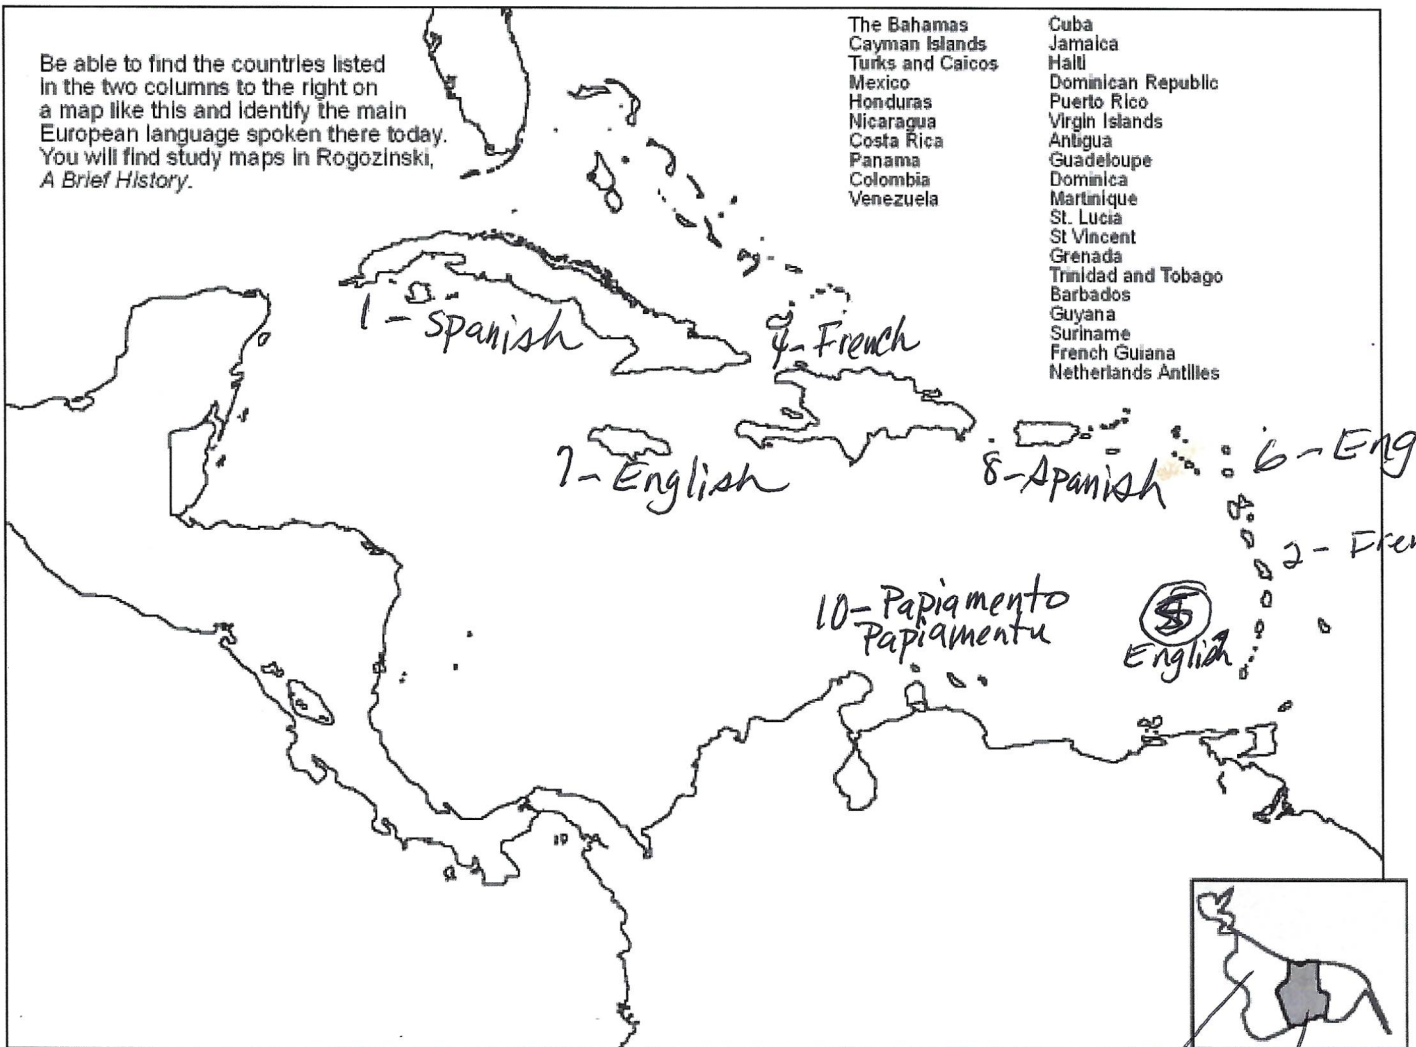 Be able to find the countries listed
in the two columns to the right on
a map like this and identify the main
European language spoken there today.
You will find study maps in Rogozinski,
A Brief History.
The Bahamas
Cayman Islands
Turks and Caicos
Mexico
Honduras
Nicaragua
Costa Rica
Panama
Colombia
Venezuela
Cuba
Jamaica
Haiti
Dominican Republic
Puerto Rico
Virgin Islands
Antigua
Guadeloupe
Dominica
Martinique
St. Lucia
St Vincent
Grenada
Trinidad and Tobago
Barbados
Guyana
Suriname
French Guiana
Netherlands Antilles
1 - Spanish
4 - French
7 - English
8 - Spanish
6 - Eng
2 - Fren
10 - Papiamento
Papiamentu
5
English